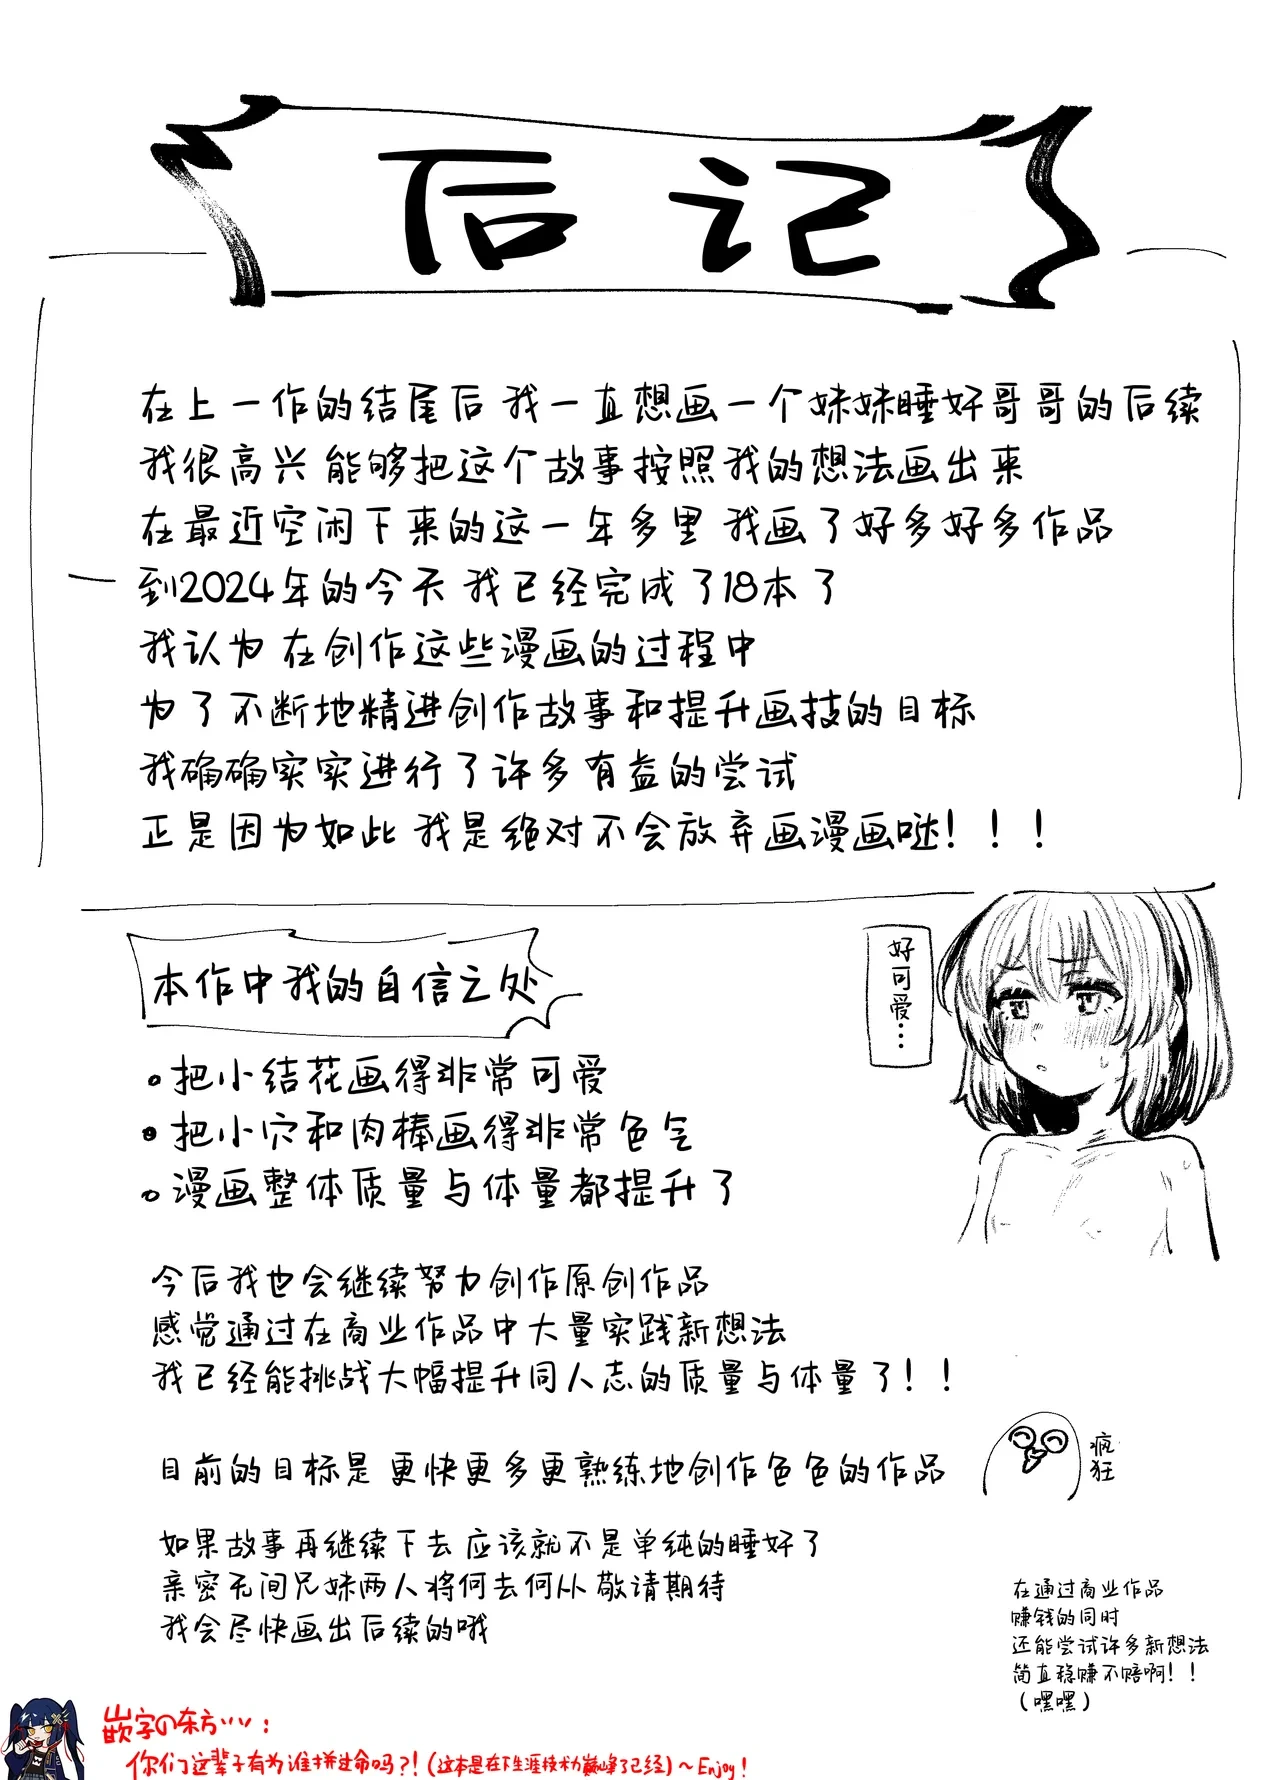 后记
在上一作的结尾后 我一直想画一个妹妹睡奸哥哥的后续
我很高兴 能够把这个故事按照我的想法画出来
在最近空闲下来的这一年多里 我画了好多好多作品
到2024年的今天 我已经完成了18本了
我认为 在创作这些漫画的过程中
为了不断地精进创作故事和提升画技的目标
我确确实实进行了许多有益的尝试
正是因为如此 我是绝对不会放弃画漫画哒！！！
本作中我的自信之处
好可爱…
。把小结花画得非常可爱
。把小穴和肉棒画得非常色气
。漫画整体质量与体量都提升了
今后我也会继续努力创作原创作品
感觉通过在商业作品中大量实践新想法
我已经能挑战大幅提升同人志的质量与体量了！！
目前的目标是 更快更多更熟练地创作色色的作品
疯狂
如果故事再继续下去 应该就不是单纯的睡奸了
亲密无间兄妹两人将何去何从 敬请期待
我会尽快画出后续的哦
在通过商业作品
赚钱的同时
还能尝试许多新想法
简直稳赚不赔啊！！
（嘿嘿）
嵌字の东方ツツ：
你们这辈子有为谁拼过命吗？！（这本是在下生涯技术力巅峰了已经）～Enjoy！